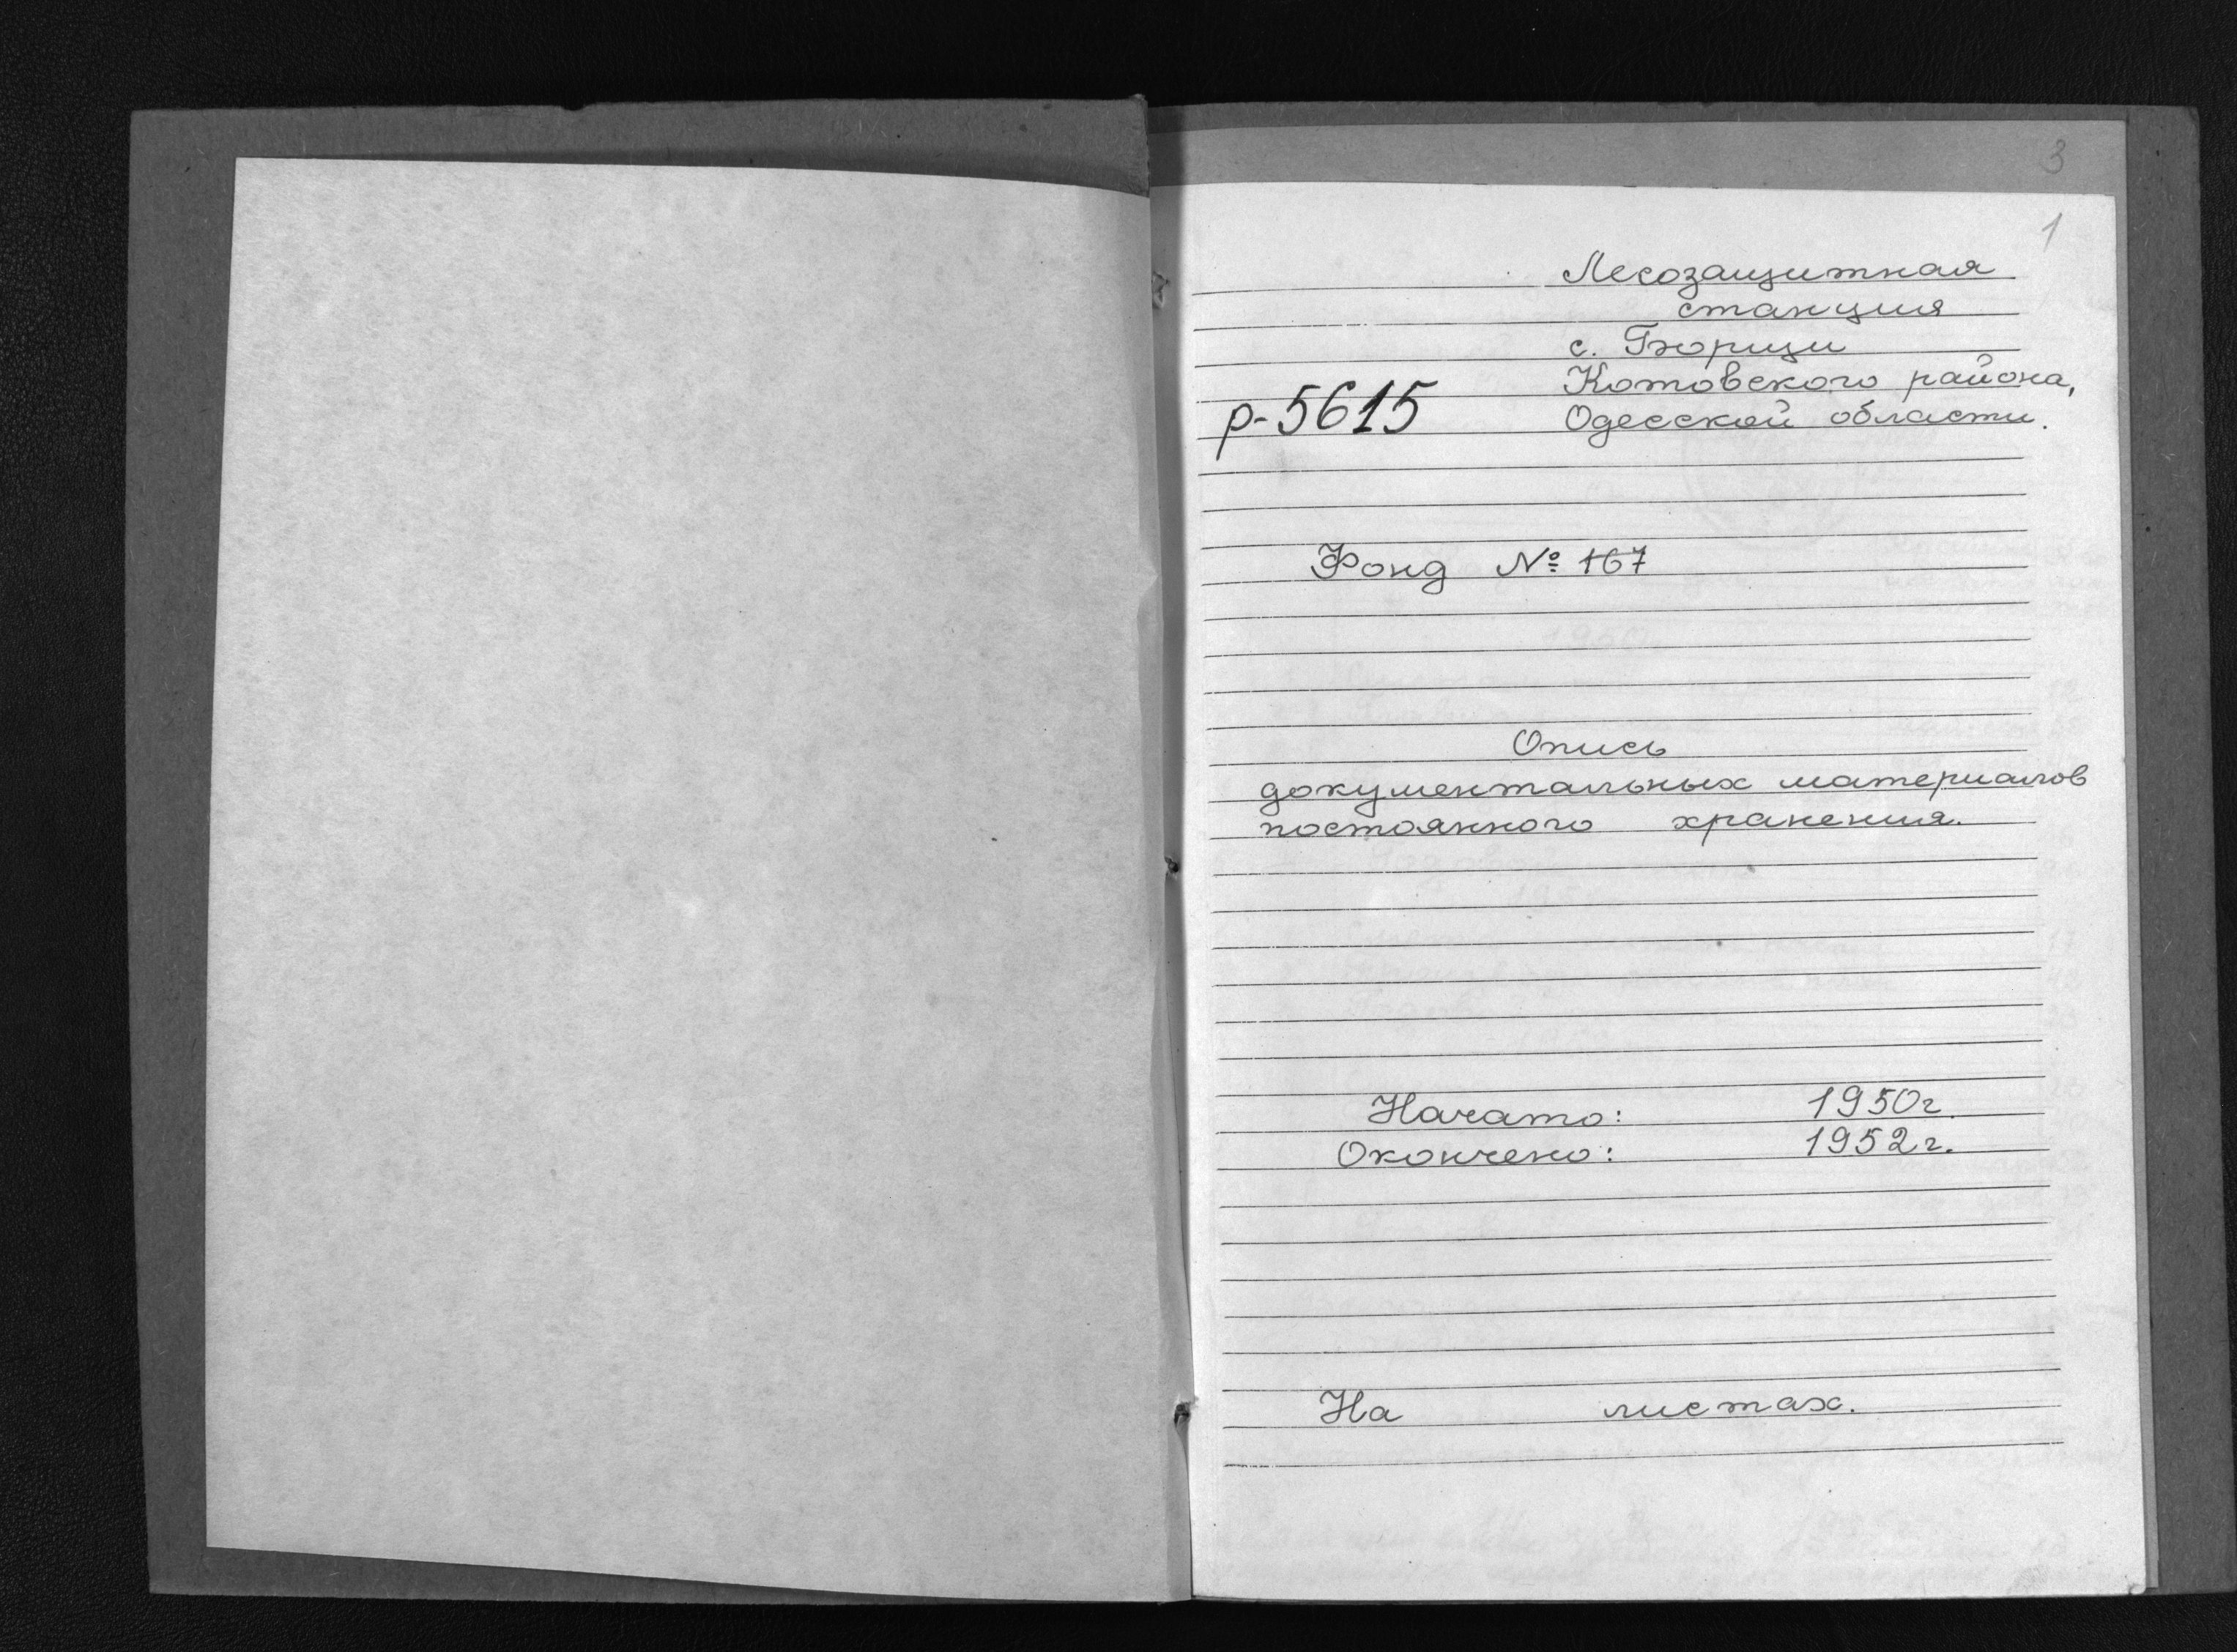 3
1
Лесозащитная
станция
с. Борщи
Котовского района,
р-5615 Одесской области.
Фонд № 167
Опись
документальных материалов
постоянного хранения.
Начато: 1950г.
Окончено: 1952г.
На листах.